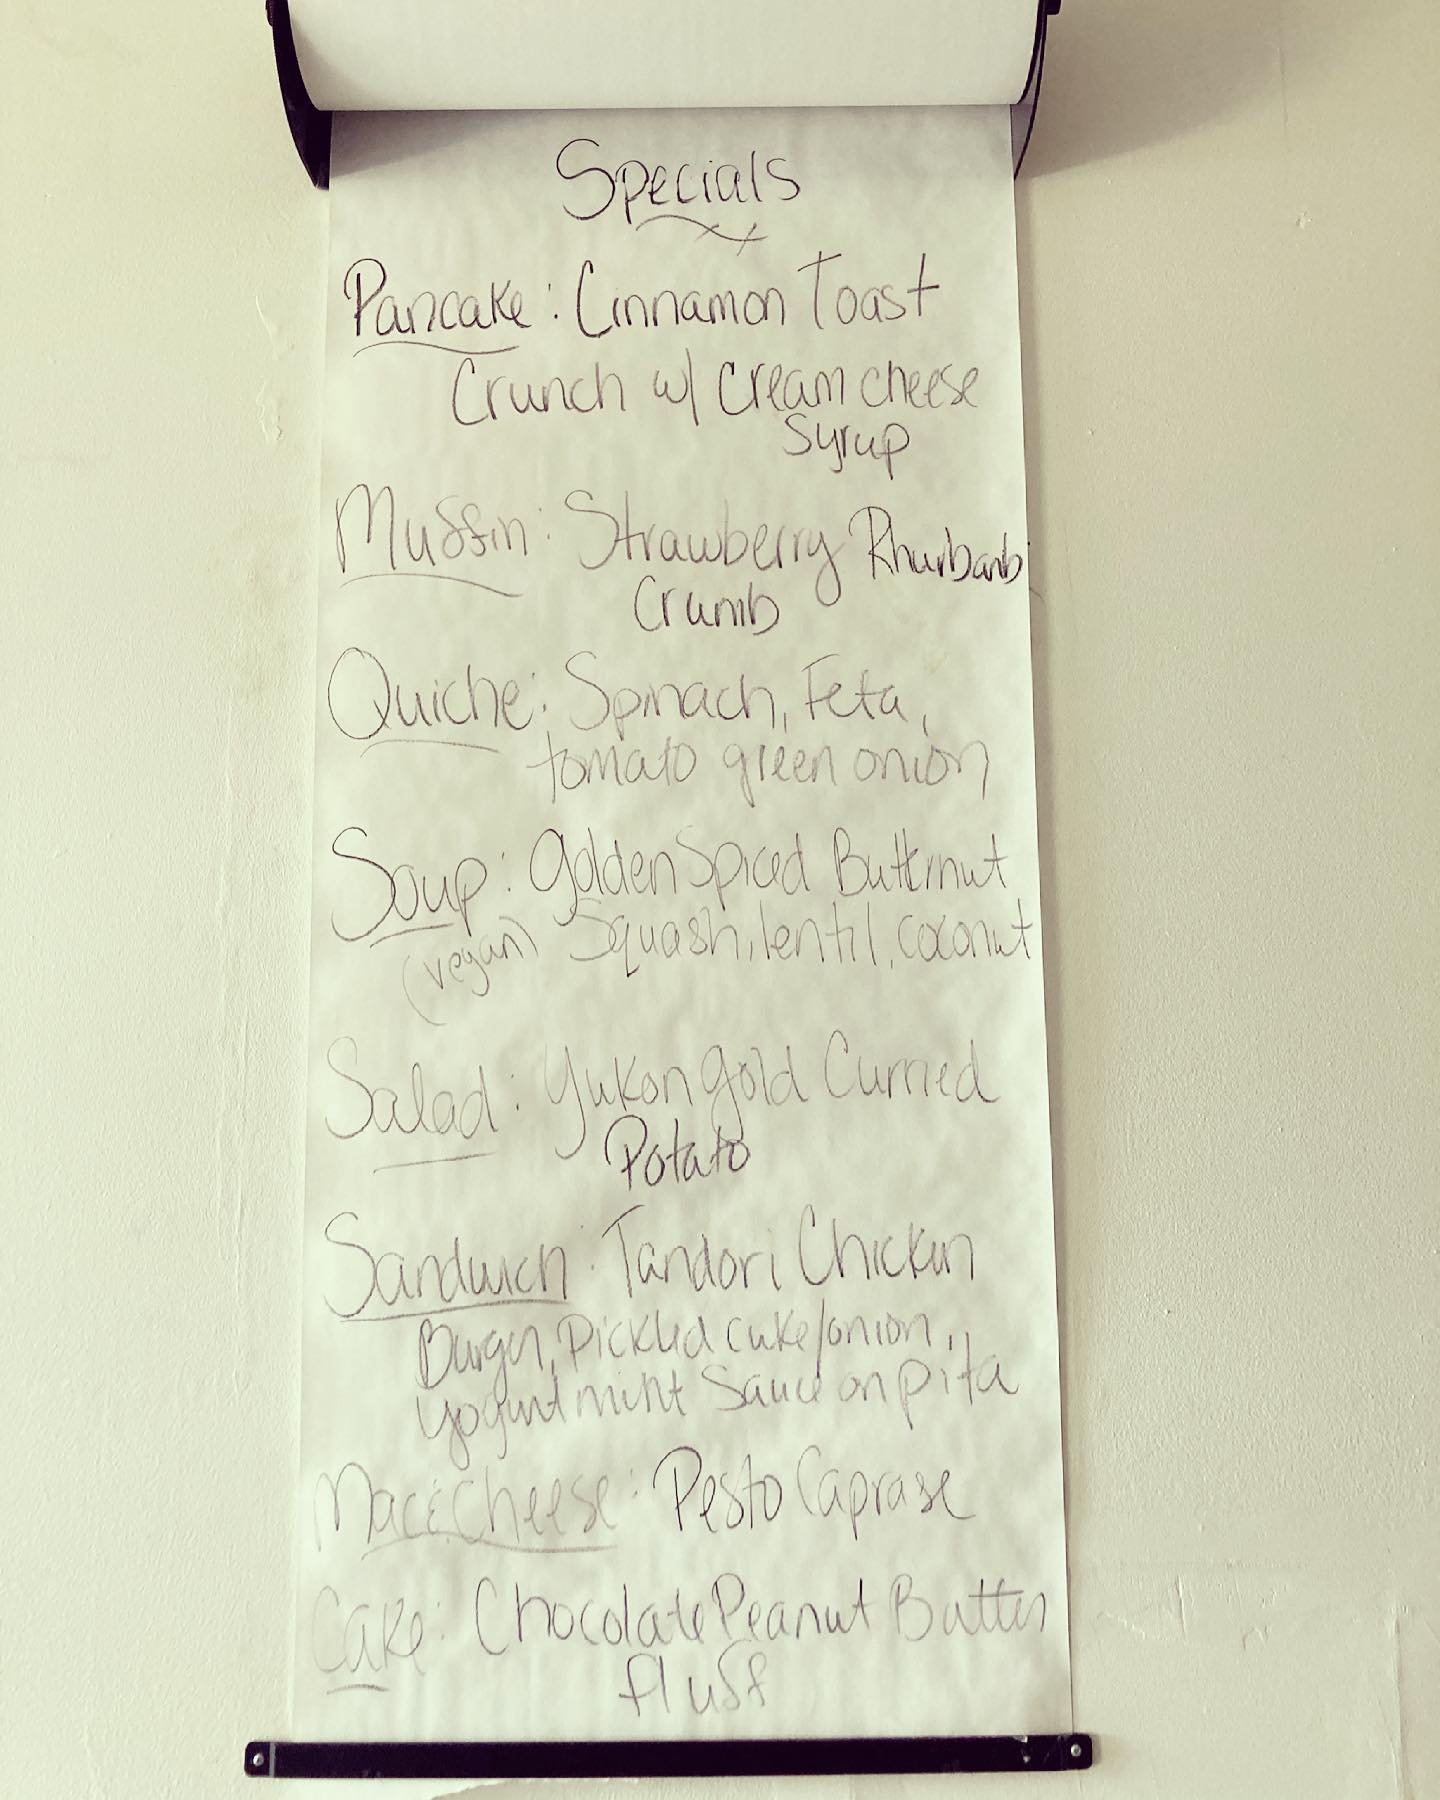 Specials
Pancake: Cinnamon Toast
Crunch w/ Cream cheese
Syrup
Muffin: Strawberry Rhurbarb
Crumb
Quiche: Spinach, Feta,
tomato green onion
Soup: Golden Spiced Butternut
(vegan) Squash, lentil, coconut
Salad: Yukon gold Curried
Potato
Sandwich: Tandori Chicken
Burger, Pickled cuke/onion,
Yogurt mint Sauce on pita
Mac & Cheese: Pesto Caprase
Cake: Chocolate Peanut Butter
fluff